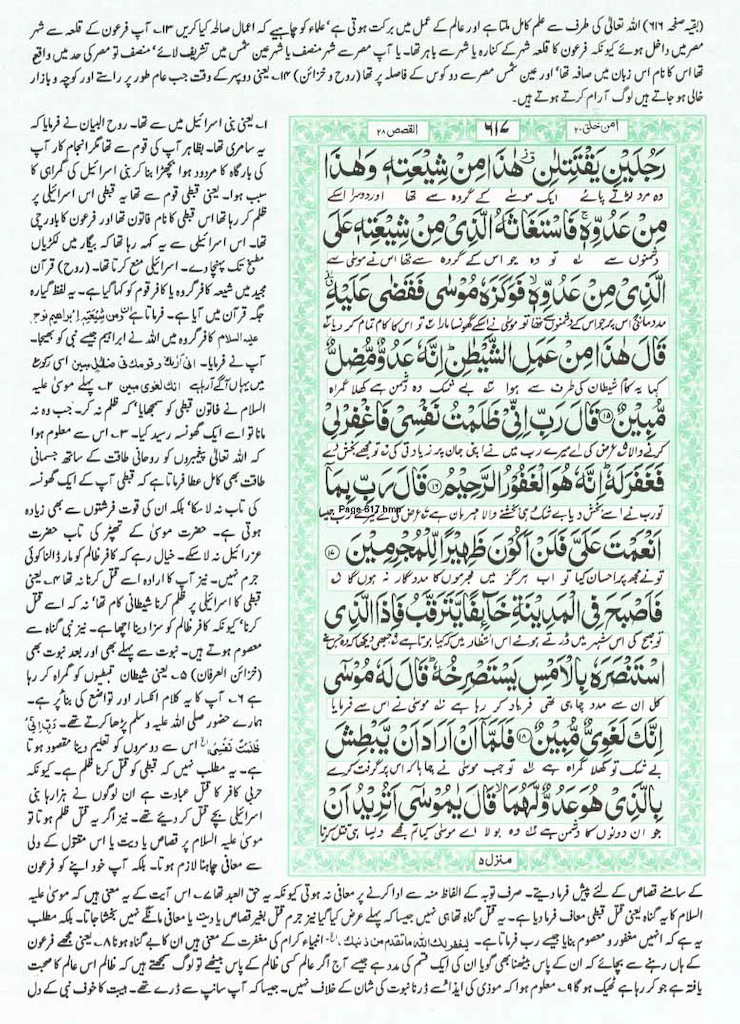 (بقیہ صفحہ ۶۱۶) اللہ تعالیٰ کی طرف سے علم کامل ملتا ہے اور عالم کے عمل میں برکت ہوتی ہے‘ علماء کو چاہیے کہ اعمال صالحہ کیا کریں ۱۳۔ آپ فرعون کے قلعہ سے شہر
مصر میں داخل ہوئے کیونکہ فرعون کا قلعہ شہر کے کنارہ یا شہر سے باہر تھا۔ یا آپ مصر سے شہر منصف یا شہر عین شمس میں تشریف لائے‘ منصف تو مصر کی حد میں واقع
تھا اس کا نام اس زبان میں صافہ تھا‘ اور عین شمس مصر سے دو کوس کے فاصلہ پر تھا (روح و خزائن) ۱۴۔ یعنی دوپہر کے وقت جب عام طور پر راستے اور کوچہ و بازار
خالی ہو جاتے ہیں لوگ آرام کرتے ہوتے ہیں۔
امن خلق ۲۰
۶۱۷
القصص ۲۸
رَجُلَيْنِ يَقْتَتِلٰنِ هٰذَا مِنْ شِيْعَتِهٖ وَهٰذَا
وہ مرد لڑتے پائے ایک موسیٰ کے گروہ سے تھا اور دوسرا اسکے
مِنْ عَدُوِّهٖ فَاسْتَغَاثَهُ الَّذِىْ مِنْ شِيْعَتِهٖ عَلَى
دشمنوں سے تو وہ جو اس کے گروہ سے تھا اس نے موسیٰ سے
الَّذِىْ مِنْ عَدُوِّهٖ فَوَكَزَهٗ مُوْسٰى فَقَضٰى عَلَيْهِ
مدد مانگی اس پر جو اس کے دشمنوں سے تھا تو موسیٰ نے اسکے گھونسا مارا تو اس کا کام تمام کر دیا
قَالَ هٰذَا مِنْ عَمَلِ الشَّيْطٰنِ اِنَّهٗ عَدُوٌّ مُّضِلٌّ
کہا یہ کام شیطان کی طرف سے ہوا بے شک وہ دشمن ہے کھلا گمراہ
مُّبِيْنٌ ۱۵ قَالَ رَبِّ اِنِّىْ ظَلَمْتُ نَفْسِىْ فَاغْفِرْ لِىْ
کرنے والا عرض کی اے میرے رب میں نے اپنی جان پر زیادتی کی تو مجھے بخش دے
فَغَفَرَ لَهٗ اِنَّهٗ هُوَ الْغَفُوْرُ الرَّحِيْمُ ۱۶ قَالَ رَبِّ بِمَا
Page 617.bmp
تو رب نے اسے بخش دیا بے شک وہی بخشنے والا مہربان ہے عرض کی اے میرے رب جیسا
اَنْعَمْتَ عَلَىَّ فَلَنْ اَكُوْنَ ظَهِيْرًا لِّلْمُجْرِمِيْنَ ۱۷
تو نے مجھ پر احسان کیا تو اب ہرگز میں مجرموں کا مددگار نہ ہوں گا
فَاَصْبَحَ فِى الْمَدِيْنَةِ خَآئِفًا يَّتَرَقَّبُ فَاِذَا الَّذِى
تو صبح کی اس شہر میں ڈرتے ہوئے اس انتظار میں کہ کیا ہوتا ہے جبھی دیکھا کہ وہ جس نے
اسْتَنْصَرَهٗ بِالْاَمْسِ يَسْتَصْرِخُهٗ قَالَ لَهٗ مُوْسٰٓى
کل ان سے مدد چاہی تھی فریاد کر رہا ہے موسیٰ نے اس سے فرمایا
اِنَّكَ لَغَوِىٌّ مُّبِيْنٌ ۱۸ فَلَمَّآ اَنْ اَرَادَ اَنْ يَّبْطِشَ
بے شک تو کھلا گمراہ ہے تو جب موسیٰ نے چاہا کہ اس پر گرفت کرے
بِالَّذِىْ هُوَ عَدُوٌّ لَّهُمَا قَالَ يٰمُوْسٰٓى اَتُرِيْدُ اَنْ
جو ان دونوں کا دشمن ہے وہ بولا اے موسیٰ کیا تم مجھے ویسا ہی قتل کرنا
منزل ۵
۱۔ یعنی بنی اسرائیل میں سے تھا۔ روح البیان نے فرمایا کہ
یہ سامری تھا۔ بظاہر آپ کی قوم سے تھا مگر انجام کار آپ
کی بارگاہ کا مردود ہوا بچھڑا بنا کر بنی اسرائیل کی گمراہی کا
سبب ہوا۔ یعنی قبطی قوم سے تھا یہ قبطی اس اسرائیلی پر
ظلم کر رہا تھا اس قبطی کا نام فاتون تھا اور فرعون کا باورچی
تھا۔ اس اسرائیلی سے یہ کہہ رہا تھا کہ بیگار میں لکڑیاں
مطبخ تک پہنچا دے۔ اسرائیلی منع کرتا تھا۔ (روح) قرآن
مجید میں شیعہ کافر گروہ یا کافر قوم کو کہا گیا ہے۔ یہ لفظ گیارہ
جگہ قرآن میں آیا ہے۔ فرماتا ہے مِنْ شِيْعَتِهٖ لَاِبْرٰهِيْمَ نوح
علیہ السلام کافر گروہ میں اللہ نے ابراہیم جیسے نبی کو بھیجا۔
آپ نے فرمایا۔ انی اراک وقومک فی ضلل مبین اسی رکوع
میں یہاں آگے آ رہا ہے انک لغوی مبین ۲۔ پہلے موسیٰ علیہ
السلام نے فاتون قبطی کو سمجھایا‘ کہ ظلم نہ کر۔ جب وہ نہ
مانا تو اسے ایک گھونسہ رسید کیا۔ ۳۔ اس سے معلوم ہوا
کہ اللہ تعالیٰ پیغمبروں کو روحانی طاقت کے ساتھ جسمانی
طاقت بھی کامل عطا فرماتا ہے کہ قبطی آپ کے ایک گھونسہ
کی تاب نہ لا سکا‘ بلکہ ان کی قوت فرشتوں سے بھی زیادہ
ہوتی ہے۔ حضرت موسیٰ کے تھپڑ کی تاب حضرت
عزرائیل نہ لا سکے۔ خیال رہے کہ کافر ظالم کو مار ڈالنا کوئی
جرم نہیں۔ نیز آپ کا ارادہ اسے قتل کرنا نہ تھا ۴۔ یعنی
قبطی کا اسرائیلی پر ظلم کرنا شیطانی کام تھا‘ نہ کہ اسے قتل
کرنا‘ کیونکہ کافر ظالم کو سزا دینا اچھا ہے۔ نیز نبی گناہ سے
معصوم ہوتے ہیں۔ نبوت سے پہلے بھی اور بعد نبوت بھی
(خزائن العرفان) ۵۔ یعنی شیطان قبطیوں کو گمراہ کر رہا
ہے ۶۔ آپ کا یہ کلام انکسار اور تواضع کی بنا پر ہے۔
ہمارے حضور صلی اللہ علیہ وسلم پڑھا کرتے تھے۔ رَبِّ اِنِّىْ
ظَلَمْتُ نَفْسِىْ الخ اس سے دوسروں کو تعلیم دینا مقصود ہوتا
ہے۔ یہ مطلب نہیں کہ قبطی کو قتل کرنا ظلم ہے۔ کیونکہ
حربی کافر کا قتل عبادت ہے ان لوگوں نے ہزارہا بنی
اسرائیلی بچے قتل کر دیئے تھے۔ نیز اگر یہ قتل ظلم ہوتا تو
موسیٰ علیہ السلام پر قصاص یا دیت یا اس مقتول کے ولی
سے معافی چاہنا لازم ہوتا۔ بلکہ آپ خود اپنے کو فرعون
کے سامنے قصاص کے لئے پیش فرما دیتے۔ صرف توبہ کے الفاظ منہ سے ادا کرنے پر معافی نہ ہوتی کیونکہ یہ حق العبد تھا ۷۔ اس آیت کے یہ معنی ہیں کہ موسیٰ علیہ
السلام کا یہ گناہ یعنی قتل قبطی معاف فرما دیا ہے۔ یہ قتل گناہ تھا ہی نہیں جیسا کہ پہلے عرض کیا گیا نیز جرم قتل بغیر قصاص یا دیت یا معافی مانگے نہیں بخشا جاتا۔ بلکہ مطلب
یہ ہے کہ انہیں مغفور و معصوم بنایا جیسے رب فرماتا ہے۔ لیغفر لک اللہ ما تقدم من ذنبک الخ۔ انبیاء کرام کی مغفرت کے معنی ہیں ان کا بے گناہ ہونا ۸۔ یعنی مجھے فرعون
کے ہاں رہنے سے بچا لے کہ ان کے پاس بیٹھنا بھی گویا ان کی ایک قسم کی مدد ہے جیسے آج اگر عالم کسی ظالم کے پاس بیٹھے تو لوگ سمجھتے ہیں کہ ظالم اس عالم کا صحبت
یافتہ ہے جو کر رہا ہے ٹھیک ہو گا ۹۔ معلوم ہوا کہ موذی کی ایذا سے ڈرنا نبوت کی شان کے خلاف نہیں۔ جیسا کہ آپ سانپ سے ڈرے تھے۔ ہیبت کا خوف نبی کے دل